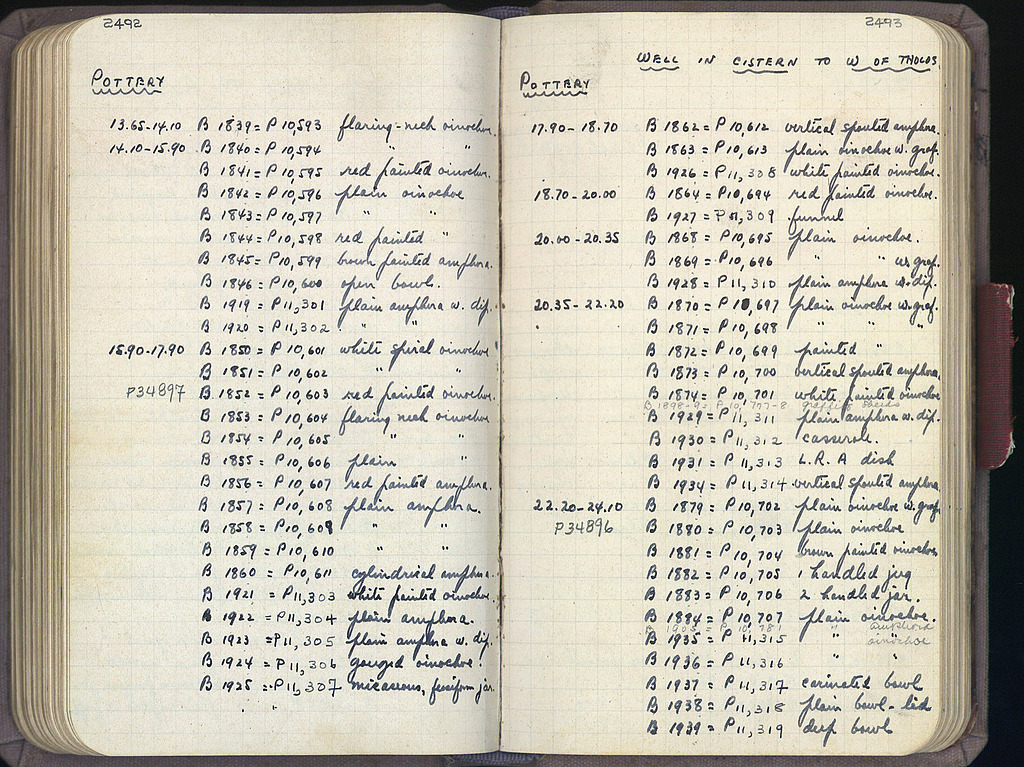 2492
POTTERY
13.65-14.10 B 1839 = P 10,593 flaring-neck oinochoe.
14.10-15.90 B 1840 = P 10,594 " "
B 1841 = P 10,595 red painted oinochoe.
B 1842 = P 10,596 plain oinochoe
B 1843 = P 10,597 " "
B 1844 = P 10,598 red painted "
B 1845 = P 10,599 brown painted amphora.
B 1846 = P 10,600 open bowl.
B 1919 = P 11,301 plain amphora w. dip.
B 1920 = P 11,302 " "
15.90-17.90 B 1850 = P 10,601 white spiral oinochoe
B 1851 = P 10,602 " "
P34897 B 1852 = P 10,603 red painted oinochoe.
B 1853 = P 10,604 flaring neck oinochoe
B 1854 = P 10,605 " "
B 1855 = P 10,606 plain "
B 1856 = P 10,607 red painted amphora.
B 1857 = P 10,608 plain amphora.
B 1858 = P 10,609 " "
B 1859 = P 10,610 " "
B 1860 = P 10,611 cylindrical amphora.
B 1921 = P 11,303 white painted oinochoe.
B 1922 = P 11,304 plain amphora.
B 1923 = P 11,305 plain amphora w. dip.
B 1924 = P 11,306 gouged oinochoe.
B 1925 = P 11,307 micaceous, fusiform jar.
2493
WELL IN CISTERN TO W OF THOLOS
POTTERY
17.90-18.70 B 1862 = P 10,612 vertical spouted amphora.
B 1863 = P 10,613 plain oinochoe w. graf.
B 1926 = P 11,308 white painted oinochoe.
18.70-20.00 B 1864 = P 10,694 red painted oinochoe.
B 1927 = P 11,309 funnel
20.00-20.35 B 1868 = P 10,695 plain oinochoe.
B 1869 = P 10,696 " " w. graf.
B 1928 = P 11,310 plain amphora w. dip.
20.35-22.20 B 1870 = P 10,697 plain oinochoe w. graf.
B 1871 = P 10,698 " " "
B 1872 = P 10,699 painted "
B 1873 = P 10,700 vertical spouted amphora
B 1874 = P 10,701 white painted oinochoe
B 1898-9 = P 10,777-8 graffito sherds
B 1929 = P 11,311 plain amphora w. dip.
B 1930 = P 11,312 casserole.
B 1931 = P 11,313 L.R. A dish
B 1934 = P 11,314 vertical spouted amphora
22.20-24.10 B 1879 = P 10,702 plain oinochoe w. graf
P34896 B 1880 = P 10,703 plain oinochoe
B 1881 = P 10,704 brown painted oinochoe
B 1882 = P 10,705 1 handled jug
B 1883 = P 10,706 2 handled jar.
B 1884 = P 10,707 plain oinochoe.
B 1905 = P 10,781 " amphora
B 1935 = P 11,315 " oinochoe
B 1936 = P 11,316 " "
B 1937 = P 11,317 carinated bowl
B 1938 = P 11,318 plain bowl-lid
B 1939 = P 11,319 deep bowl